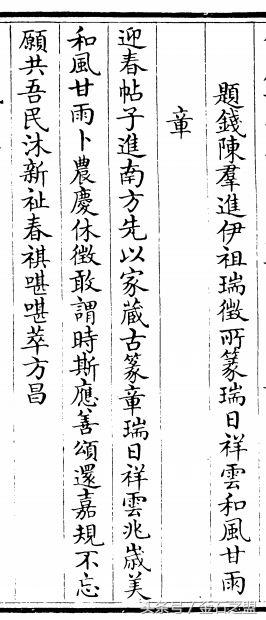 題錢陳羣進伊祖瑞徵所篆瑞日祥雲和風甘雨
章
迎春帖子進南方先以家蔵古篆章瑞日祥雲兆嵗美
和風甘雨卜農慶休徵敢謂時斯應善頌還嘉規不忘
願共吾民沐新祉春祺啿啿萃方昌
头条号/金石之盟